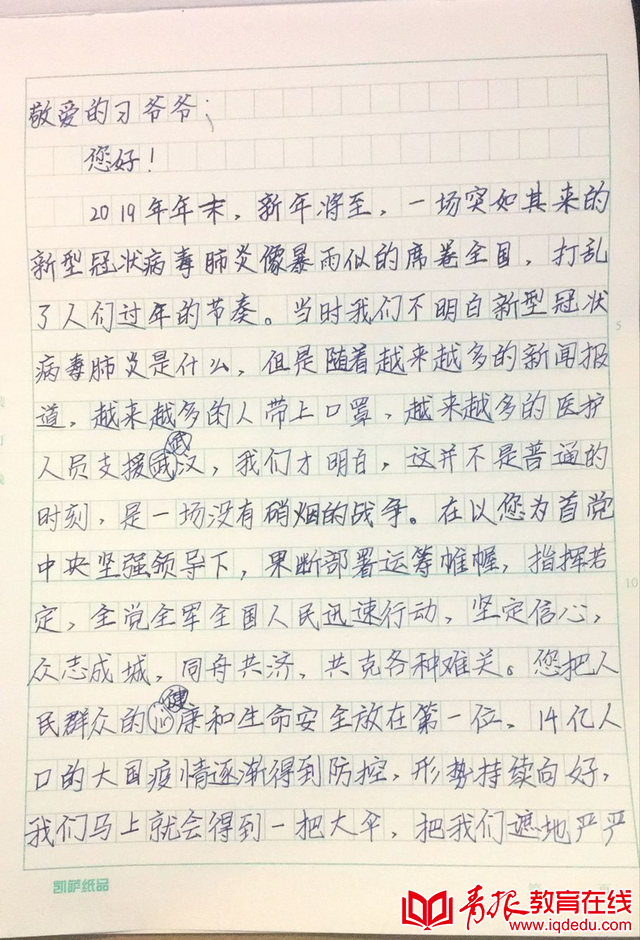 敬爱的习爷爷;
您好!
2019年年末，新年将至，一场突如其来的
新型冠状病毒肺炎像暴雨似的席卷全国，打乱
了人们过年的节奏。当时我们不明白新型冠状
病毒肺炎是什么，但是随着越来越多的新闻报
道，越来越多的人带上口罩，越来越多的医护
人员支援武汉，我们才明白，这并不是普通的
时刻，是一场没有硝烟的战争。在以您为首党
中央坚强领导下，果断部署运筹帷幄，指挥若
定，全党全军全国人民迅速行动，坚定信心，
众志成城，同舟共济，共克各种难关。您把人
民群众的健康和生命安全放在第一位，14亿人
口的大国疫情逐渐得到防控，形势持续向好，
我们马上就会得到一把大伞，把我们遮地严严
5
10
凯萨纸品
青报教育在线
www.iqdedu.com